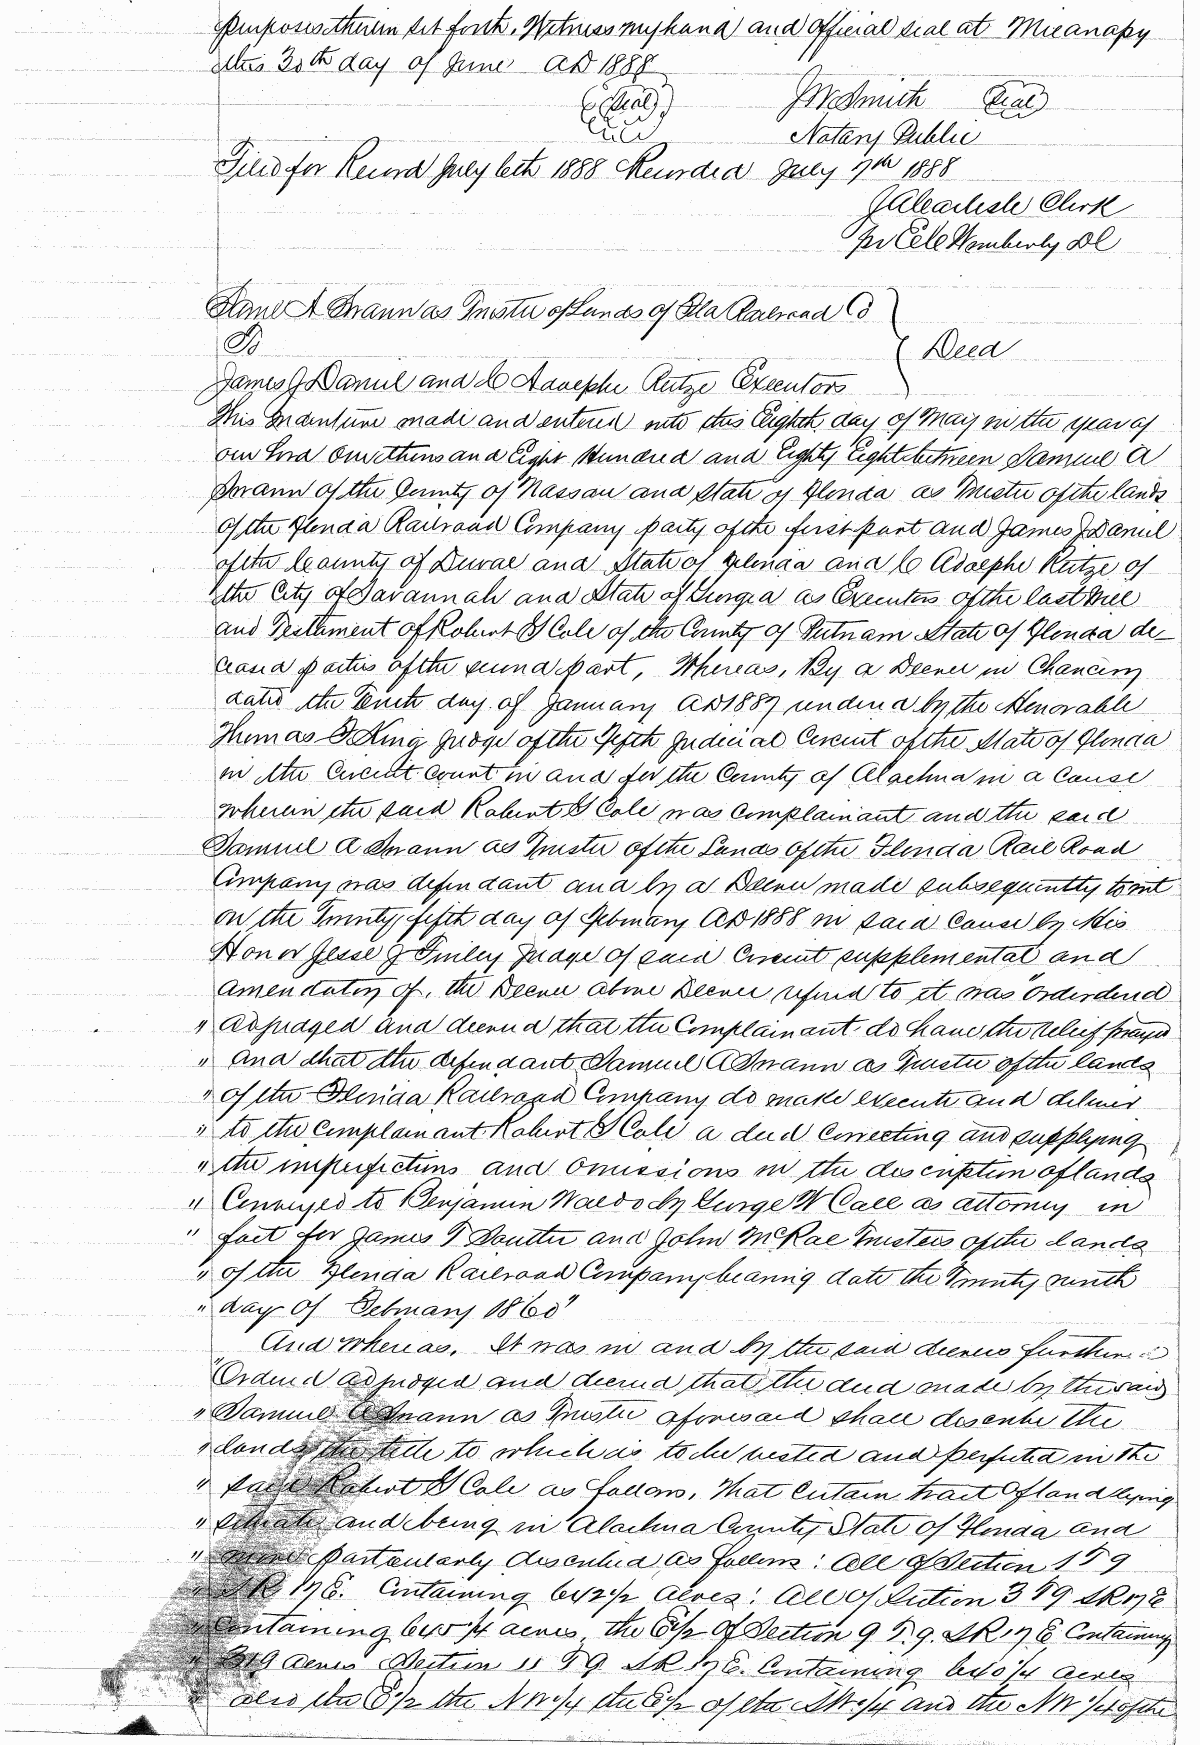 purposes therein set forth. Witness my hand and official seal at Micanapy
this 30th day of June AD 1888
(Seal) JW Smith (Seal)
Notary Public
Filed for Record July 6th 1888 Recorded July 7th 1888
J A Carlisle Clerk
pr Wimberly DC
Samuel A Swann as Trustee of Lands of Fla Railroad Co
To
Deed
James J Daniel and C Adolphe Rutze Executors
This Indenture made and entered into this Eighth day of May in the year of
our Lord One thousand Eight Hundred and Eighty Eight between Samuel A
Swann of the County of Nassau and State of Florida as Trustee of the lands
of the Florida Railroad Company party of the first part and James J Daniel
of the County of Duval and State of Florida and C Adolphe Rutze of
the City of Savannah and State of Georgia as Executors of the last Will
and Testament of Robert G Cole of the County of Putnam State of Florida de-
ceased parties of the second part, Whereas, By a Decree in Chancery
dated the Tenth day of January AD 1887 rendered by the Honorable
Thomas F King Judge of the Fifth Judicial Circuit of the State of Florida
in the Circuit Court in and for the County of Alachua in a Cause
wherein the said Robert G Cole was Complainant and the said
Samuel A Swann as Trustee of the Lands of the Florida Rail Road
Company was defendant and by a Decree made subsequently towit
on the Twenty fifth day of February AD 1888 in said Cause by His
Honor Jesse J Finley Judge of said Circuit supplemental and
amendatory of, the Decree above Decree referred to it was "Orderdered
" adjudged and decreed that the Complainant do have the relief prayed
" and that the defendant Samuel A Swann as Trustee of the lands
" of the Florida Railroad Company do make execute and deliver
" to the Complainant Robert G Cole a deed Correcting and supplying
" the imperfections and Omissions in the description of lands
" Conveyed to Benjamin Waldo by George W Call as attorney in
" fact for James T Soutter and John McRae Trustees of the lands
" of the Florida Railroad Company bearing date the Twenty ninth
" day of February 1860"
And whereas. It was in and by the said decrees further
"Ordered adjudged and decreed that the deed made by the said
" Samuel A Swann as Trustee aforesaid shall describe the
" lands the title to which is to be vested and perfected in the
" said Robert G Cole as follows. That Certain tract of land lying
" situate and being in Alachua County State of Florida and
" more particularly described as follows: All of Section 1 T 9
" S R 17 E. Containing 642 1/2 acres: All of Section 3 T 9 S R 17 E
" Containing 645 1/4 acres, the E 1/2 of Section 9 T. 9. S R 17 E Containing
" 319 acres Section 11 T 9 S R 17 E. Containing 640 1/4 acres
" also the E 1/2 the N W 1/4 the E 1/2 of the S W. 1/4 and the N W 1/4 of the